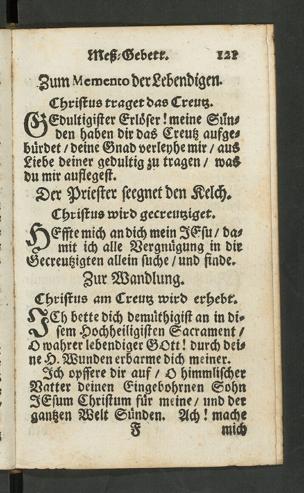 Meß-Gebett. 121
Zum Memento der Lebendigen.
Christus traget das Creutz.
GEdultigister Erlöser! meine Sün-
den haben dir das Creutz aufge-
bürdet / deine Gnad verleyhe mir / aus
Liebe deiner gedultig zu tragen / was
du mir auflegest.
Der Priester seegnet den Kelch.
Christus wird gecreutziget.
HEffte mich an dich mein JEsu / da-
mit ich alle Vergnügung in dir
Gecreutzigten allein suche / und finde.
Zur Wandlung.
Christus am Creutz wird erhebt.
ICh bette dich demüthigist an in di-
sem Hochheiligisten Sacrament /
O wahrer lebendiger GOtt! durch dei-
ne H. Wunden erbarme dich meiner.
Ich opffere dir auf / O himmlischer
Vatter deinen Eingebohrnen Sohn
JEsum Christum für meine / und der
gantzen Welt Sünden. Ach! mache
F mich